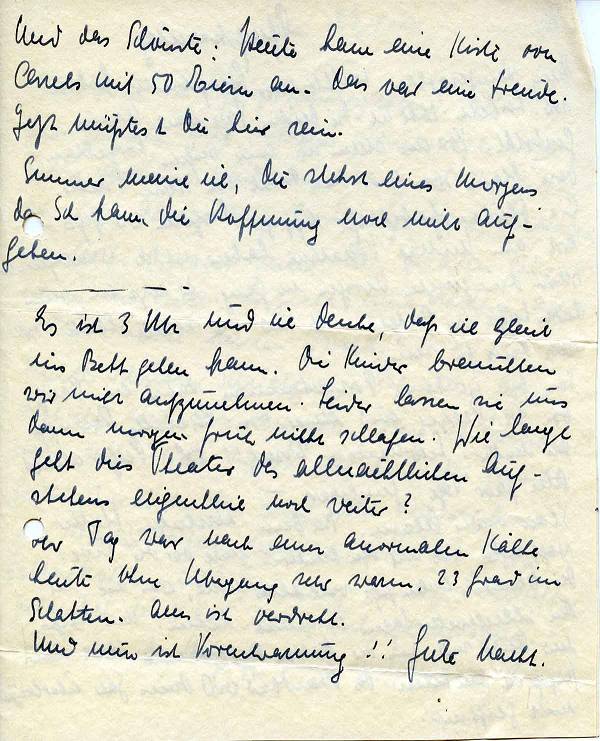 Und das Schönste: Heute kam eine Kiste von
Cassels mit 50 Eiern an. Das war eine Freude.
Jetzt müsstest Du hier sein.
Immer meine ich, Du stehst eines Morgens
da. Ich kann die Hoffnung noch nicht auf-
geben.
Es ist 3 Uhr und ich denke, daß ich gleich
ins Bett gehen kann. Die Kinder brauchten
wir nicht aufzunehmen. Leider lassen sie uns
dann morgen früh nicht schlafen. Wie lange
geht dies Theater des allnächtlichen Auf-
stehens eigentlich noch weiter?
Der Tag war nach einer anormalen Kälte
heute ohne Übergang sehr warm. 23 Grad im
Schatten. Alles ist verdreht.
Und nun ist Vorentwarnung!! Gute Nacht.